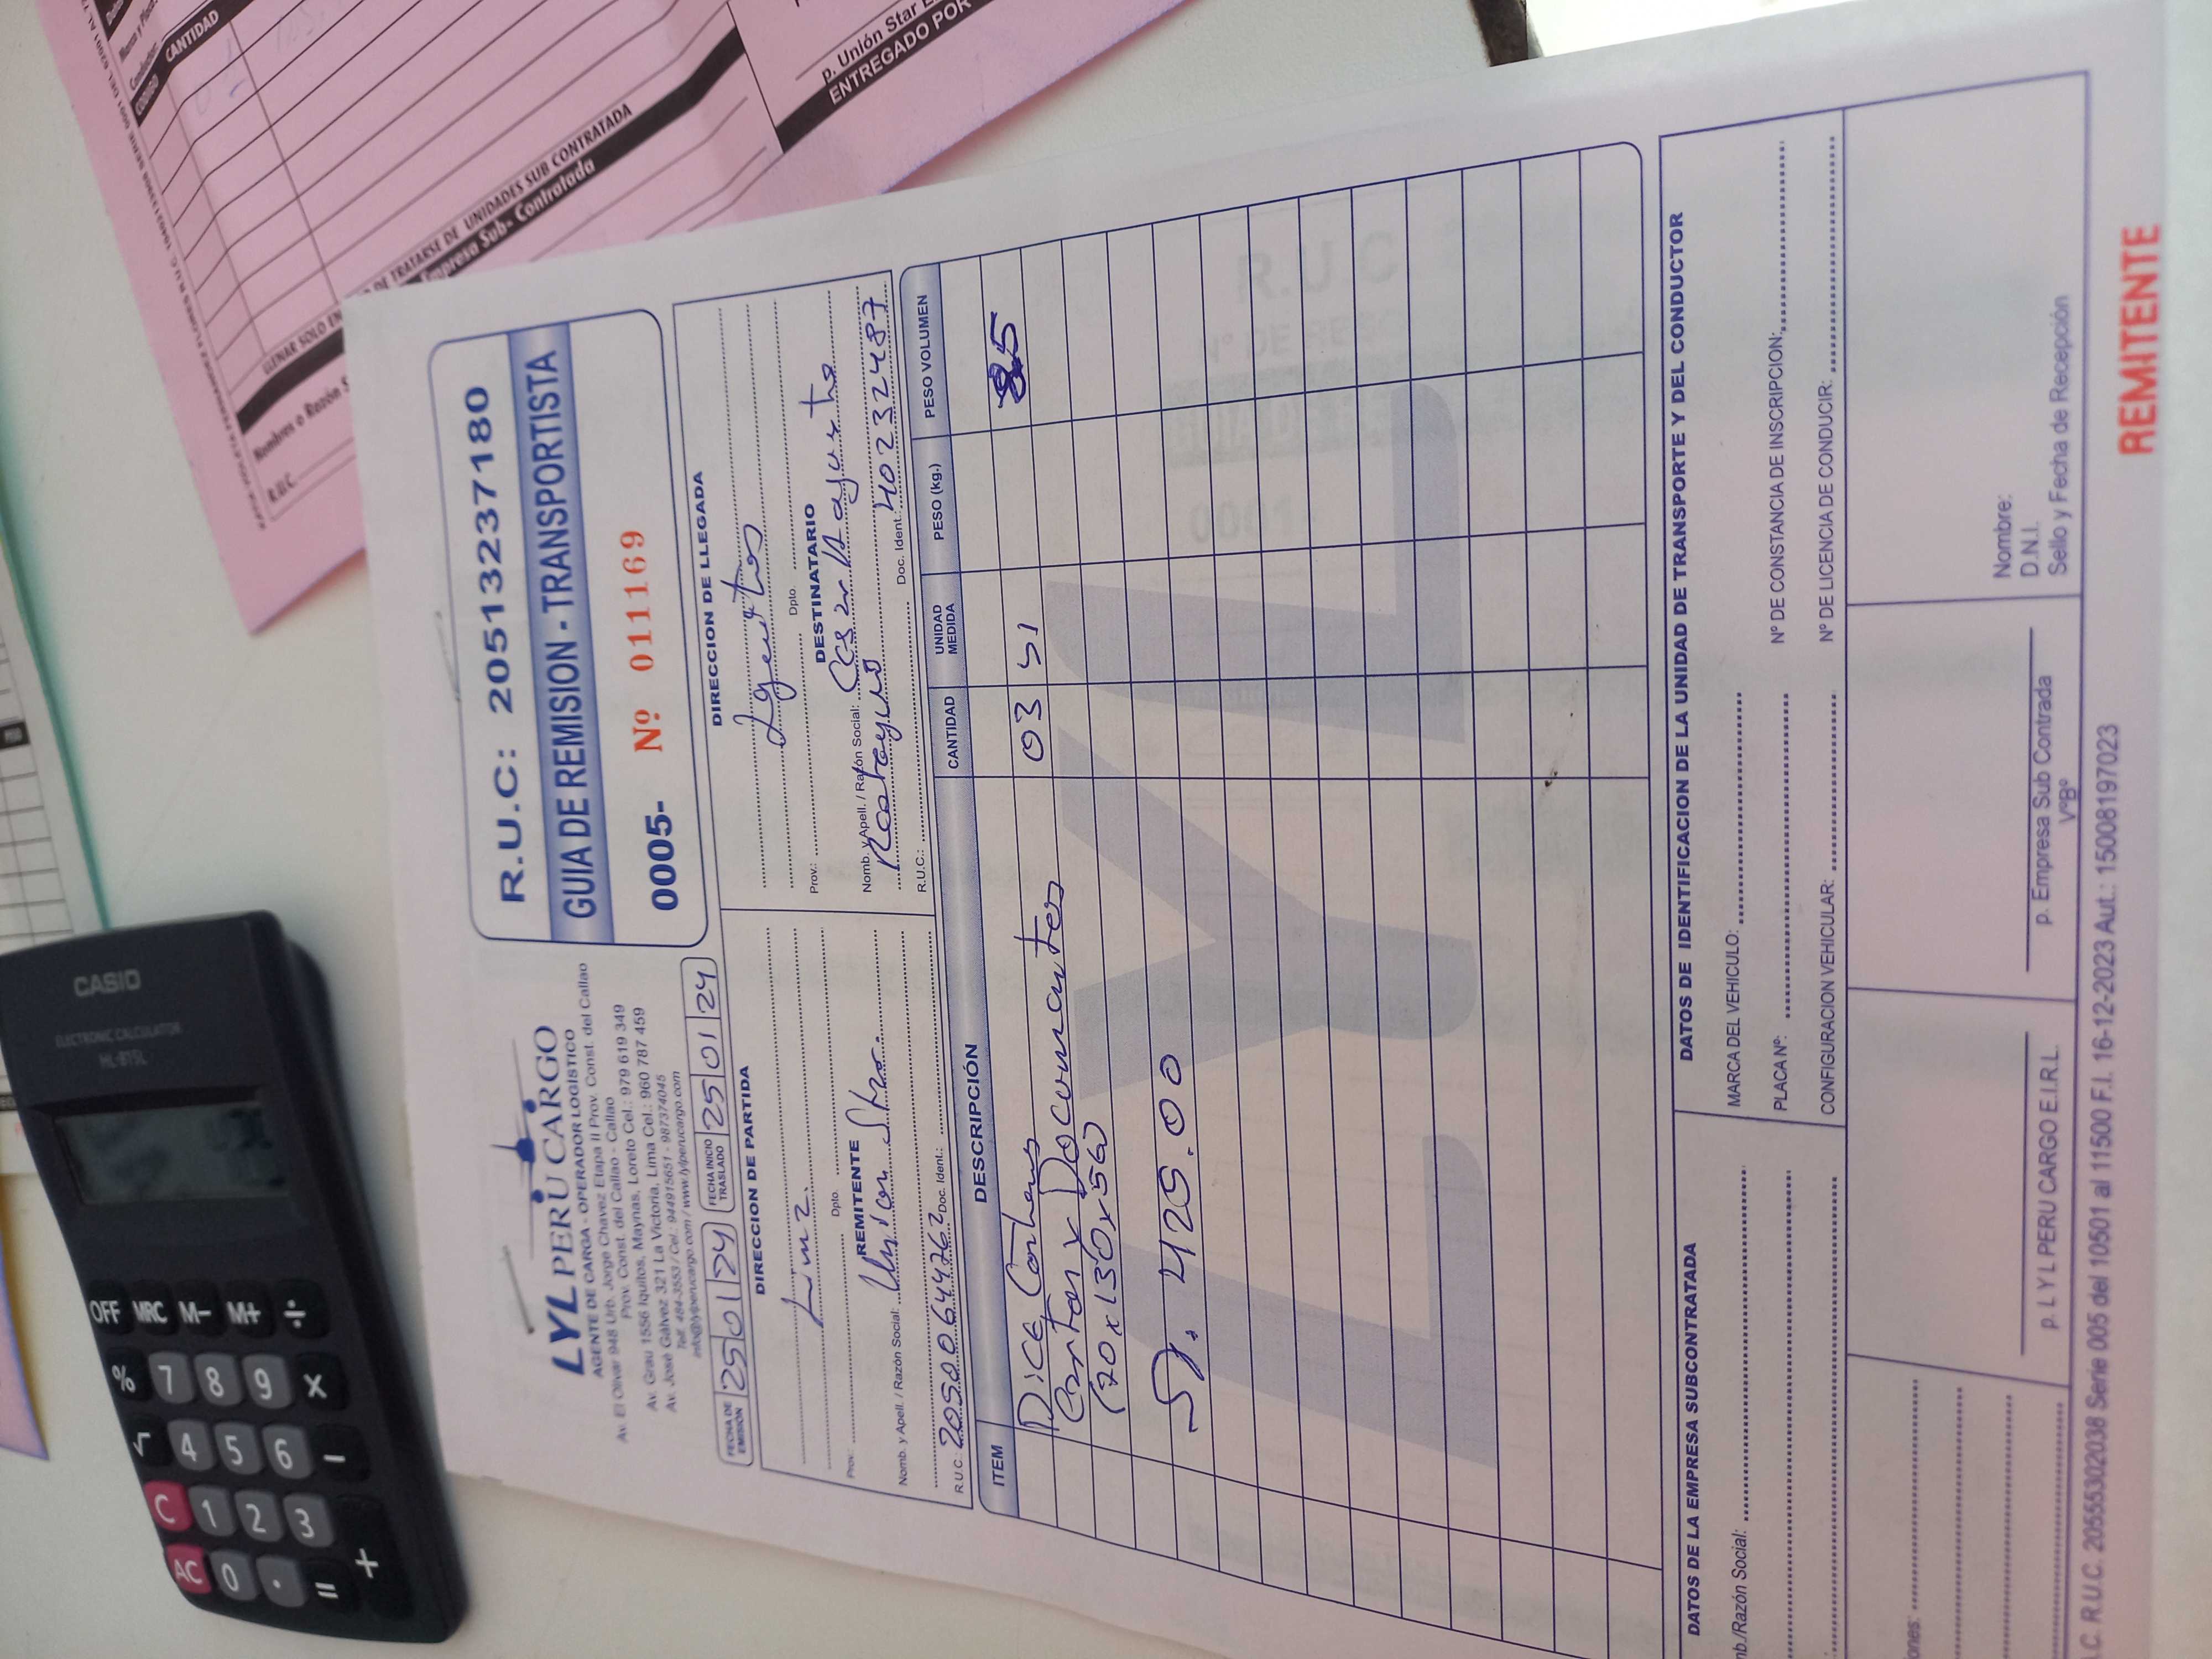 LYL PERU CARGO
AGENTE DE CARGA - OPERADOR LOGISTICO
Av. El Olivar 948 Urb. Jorge Chavez Etapa II Prov. Const. del Callao
Prov. Const. del Callao - Callao Cel.: 979 619 349
Av. Grau 1556 Iquitos, Maynas, Loreto Cel.: 960 787 459
Av. José Gálvez 321 La Victoria, Lima
Telf. 484-3553 / Cel.: 944915651 - 987374045
info@lylperucargo.com / www.lylperucargo.com
R.U.C: 20513237180
GUIA DE REMISION - TRANSPORTISTA
0005- Nº 011169
FECHA DE EMISIÓN 25 01 24 FECHA INICIO TRASLADO 25 01 24
DIRECCION DE PARTIDA
Lima.
Prov.: Dpto.
REMITENTE
Nomb. y Apell. / Razón Social: Union Star.
R.U.C.: 20500644262 Doc. Ident.:
DIRECCION DE LLEGADA
Iquitos
Prov.: Dpto.
DESTINATARIO
Nomb. y Apell. / Razón Social: Cesar Augusto
Doc. Ident.: 40232487
R.U.C.:
ITEM DESCRIPCIÓN CANTIDAD UNIDAD MEDIDA PESO (kg.) PESO VOLUMEN
Dice Contener 03 85
Cartas y Documentos
(20x130x50)
S/. 425.00
DATOS DE LA EMPRESA SUBCONTRATADA
mb./Razón Social:
DATOS DE IDENTIFICACION DE LA UNIDAD DE TRANSPORTE Y DEL CONDUCTOR
MARCA DEL VEHICULO:
PLACA Nº: Nº DE CONSTANCIA DE INSCRIPCION:
CONFIGURACION VEHICULAR: Nº DE LICENCIA DE CONDUCIR:
iones:
p. L Y L PERU CARGO E.I.R.L.
p. Empresa Sub Contrada
VºBº
Nombre:
D.N.I.
Sello y Fecha de Recepción
.C. R.U.C. 20555302038 Serie 005 del 10501 al 11500 F.I. 16-12-2023 Aut.: 15008197023
REMITENTE
CASIO
ELECTRONIC CALCULATOR
HL-815L
OFF MRC M- M+ ÷
% 7 8 9 ×
√ 4 5 6 −
C 1 2 3
AC 0 . = +
CODIGO CANTIDAD
DE TRATARSE DE UNIDADES SUB CONTRATADA
LLENAR SOLO EN
Empresa Sub- Contratada
Nombres o Razón S
R.U.C.
p. Unión Star
ENTREGADO POR